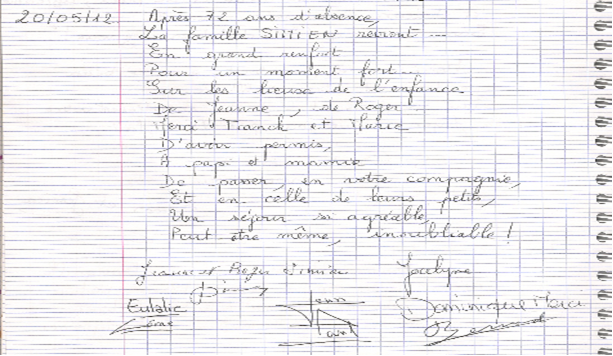 20/05/12 Après 72 ans d'absence,
La famille SIMIEN revient ...
En grand renfort
Pour un moment fort...
Sur les lieux de l'enfance
De Jeanne, de Roger
Merci Franck et Marie
D'avoir permis,
A papi et mamie
De passer, en votre compagnie,
Et en celle de leurs petits,
Un séjour si agréable,
Peut être même, inoubliable !
Jeanne et Roger Simien
Jocelyne
Eulalie
Dominique